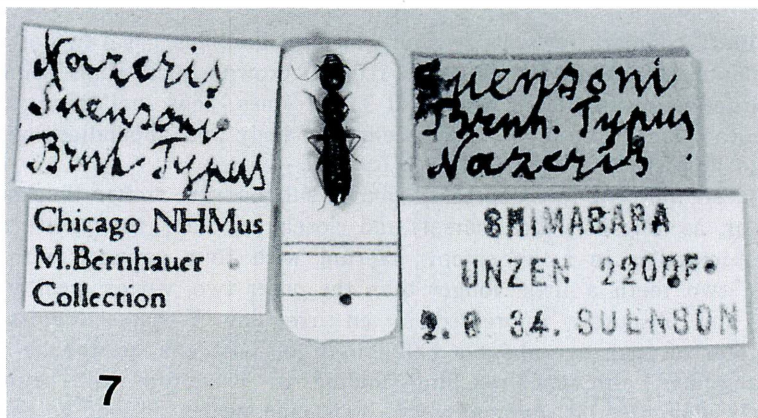 Nazeris
Suensoni
Brnh. Typus
Chicago NHMus
M.Bernhauer
Collection
Suensoni
Brnh. Typus
Nazeris
SHIMABARA
UNZEN 2200F.
SUENSON
7